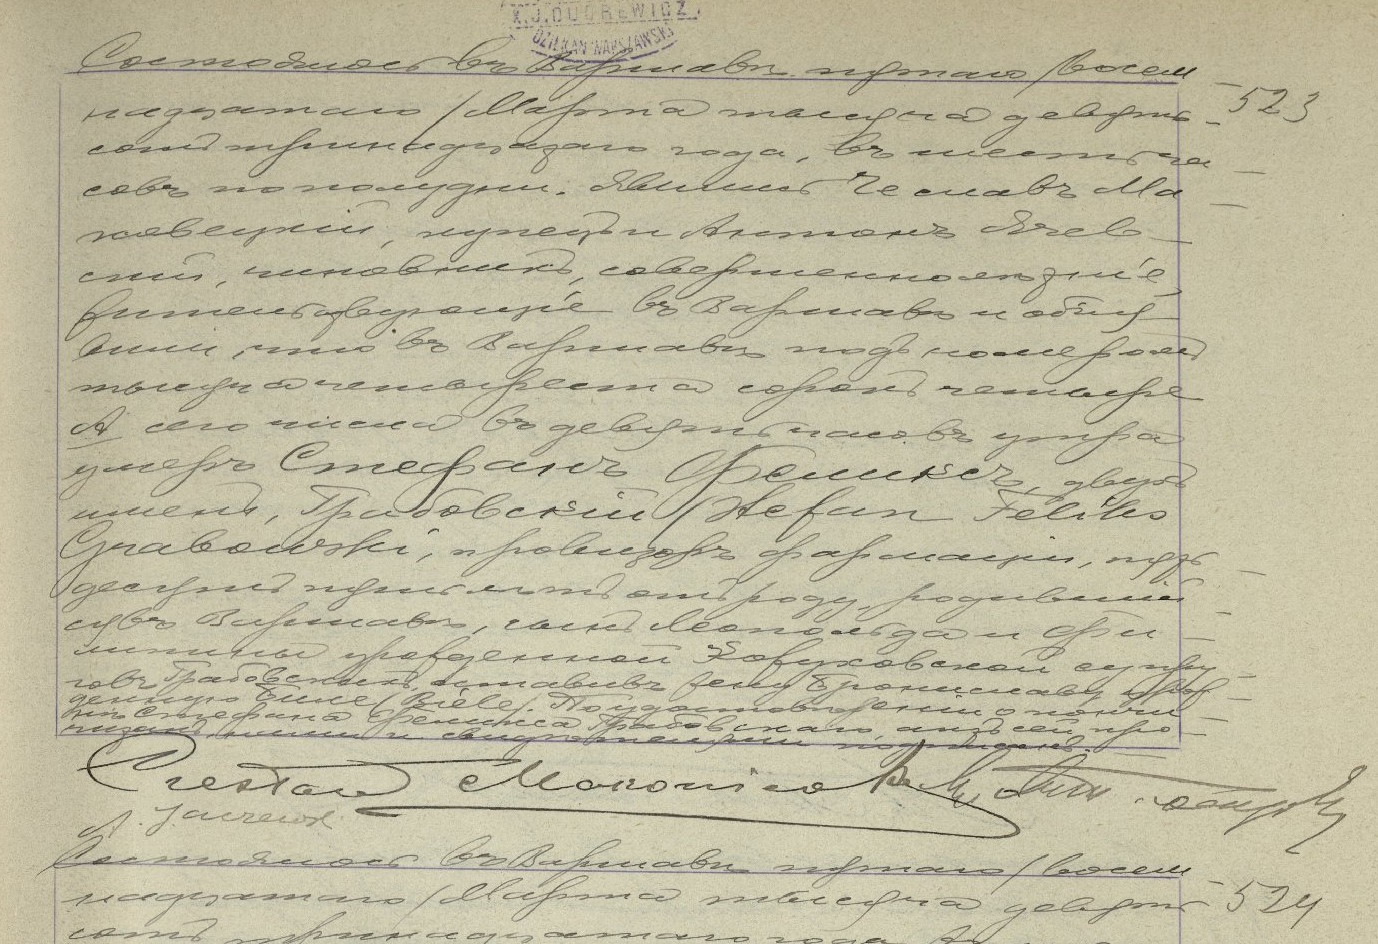 K.J. DUDREWICZ
DZIEKAN WARSZAWSKI
Состоялось въ Варшавѣ пятаго /восем
надцатаго/ Марта тысяча девять
сотъ тринадцатаго года, въ шесть ча
совъ пополудни. Явились Чеславъ Ма
ковецкій, купецъ и Антонъ Ячев
скій, чиновникъ, совершеннолѣтніе,
жительствующіе въ Варшавѣ и объя
вили, что въ Варшавѣ подъ номеромъ
тысяча четыреста сорокъ четыре
А сего числа въ девять часовъ утра
умеръ Стефанъ Феликсъ, двухъ
именъ, Грабовскій /Stefan Feliks
Grabowski/, провизоръ фармаціи, пять
десятъ пять лѣтъ отъ роду, родившій
ся въ Варшавѣ, сынъ Леопольда и Фи
липины урожденной супру
говъ Грабовскихъ, оставивъ жену Брониславу урож
денную Биле /Biele/. По удостовѣреніи о кончи
нѣ Стефана Феликса Грабовскаго актъ сей про
читанъ, нами и свидѣтелями подписанъ.
Czesław
А.
523
Состоялось въ Варшавѣ пятаго /восем
надцатаго/ Марта тысяча девять
сотъ тринадцатаго года, въ
524